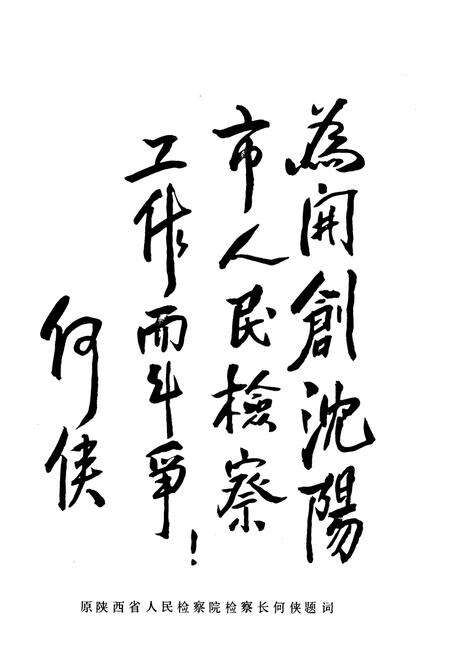 為開創沈陽
市人民檢察
工作而斗爭！
何俠
原陕西省人民检察院检察长何侠题词